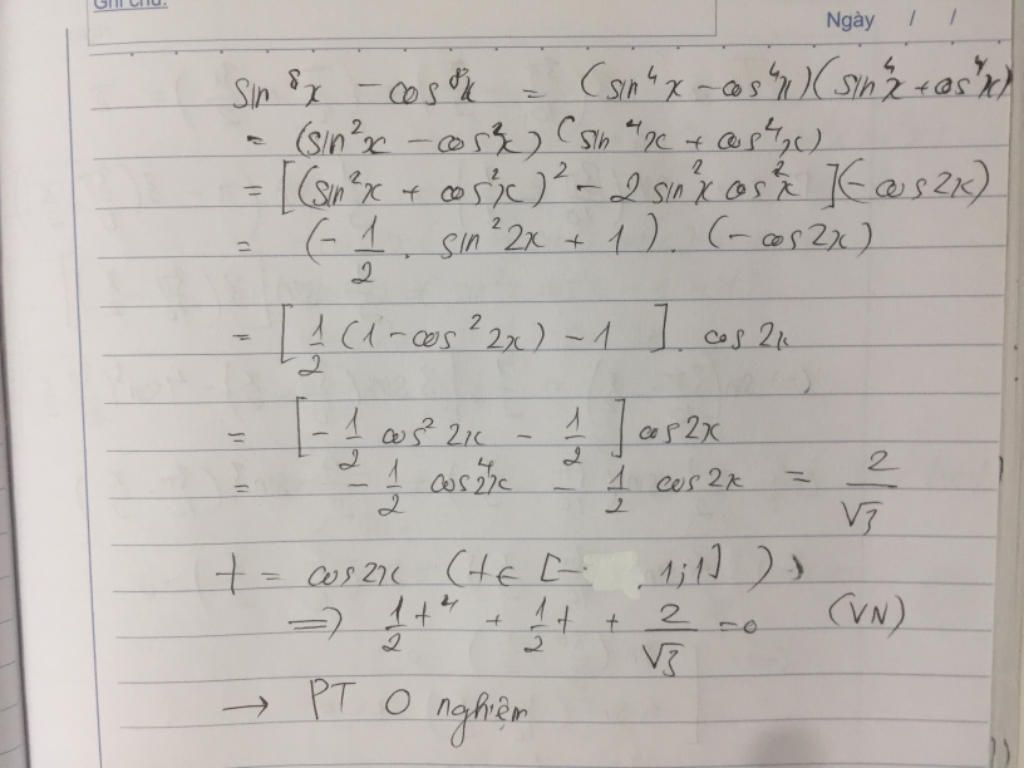 Ghi chú:
Ngày / /
sin⁸x - cos⁸x = (sin⁴x - cos⁴x)(sin⁴x + cos⁴x)
= (sin²x - cos²x)(sin⁴x + cos⁴x)
= [(sin²x + cos²x)² - 2 sin²x cos²x](-cos2x)
= (-1/2 . sin²2x + 1) . (-cos2x)
= [1/2 (1 - cos²2x) - 1] . cos2x
= [-1/2 cos²2x - 1/2] cos2x
= -1/2 cos⁴2x - 1/2 cos2x = 2/√3
t = cos2x (t ∈ [-1;1])
=> 1/2 t⁴ + 1/2 t + 2/√3 = 0 (VN)
→ PT 0 nghiệm